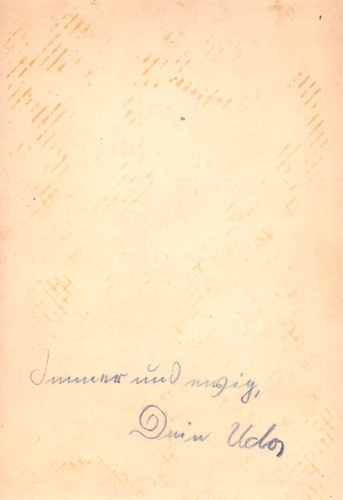 Immer und ewig,
Dein Udo